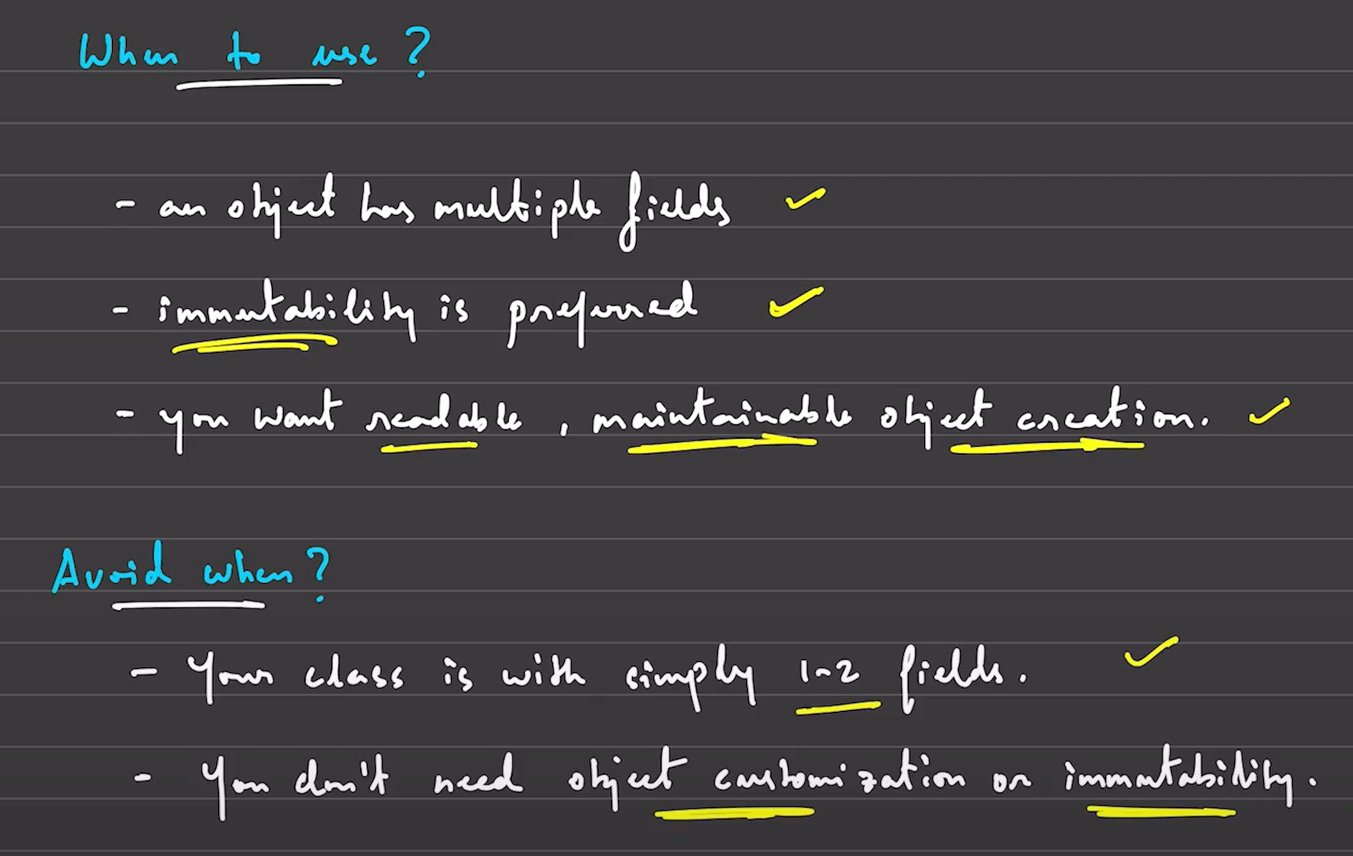 When to use ?
- an object has multiple fields
- immutability is preferred
- you want readable , maintainable object creation.
Avoid when ?
- Your class is with simply 1-2 fields.
- You don't need object customization or immutability.